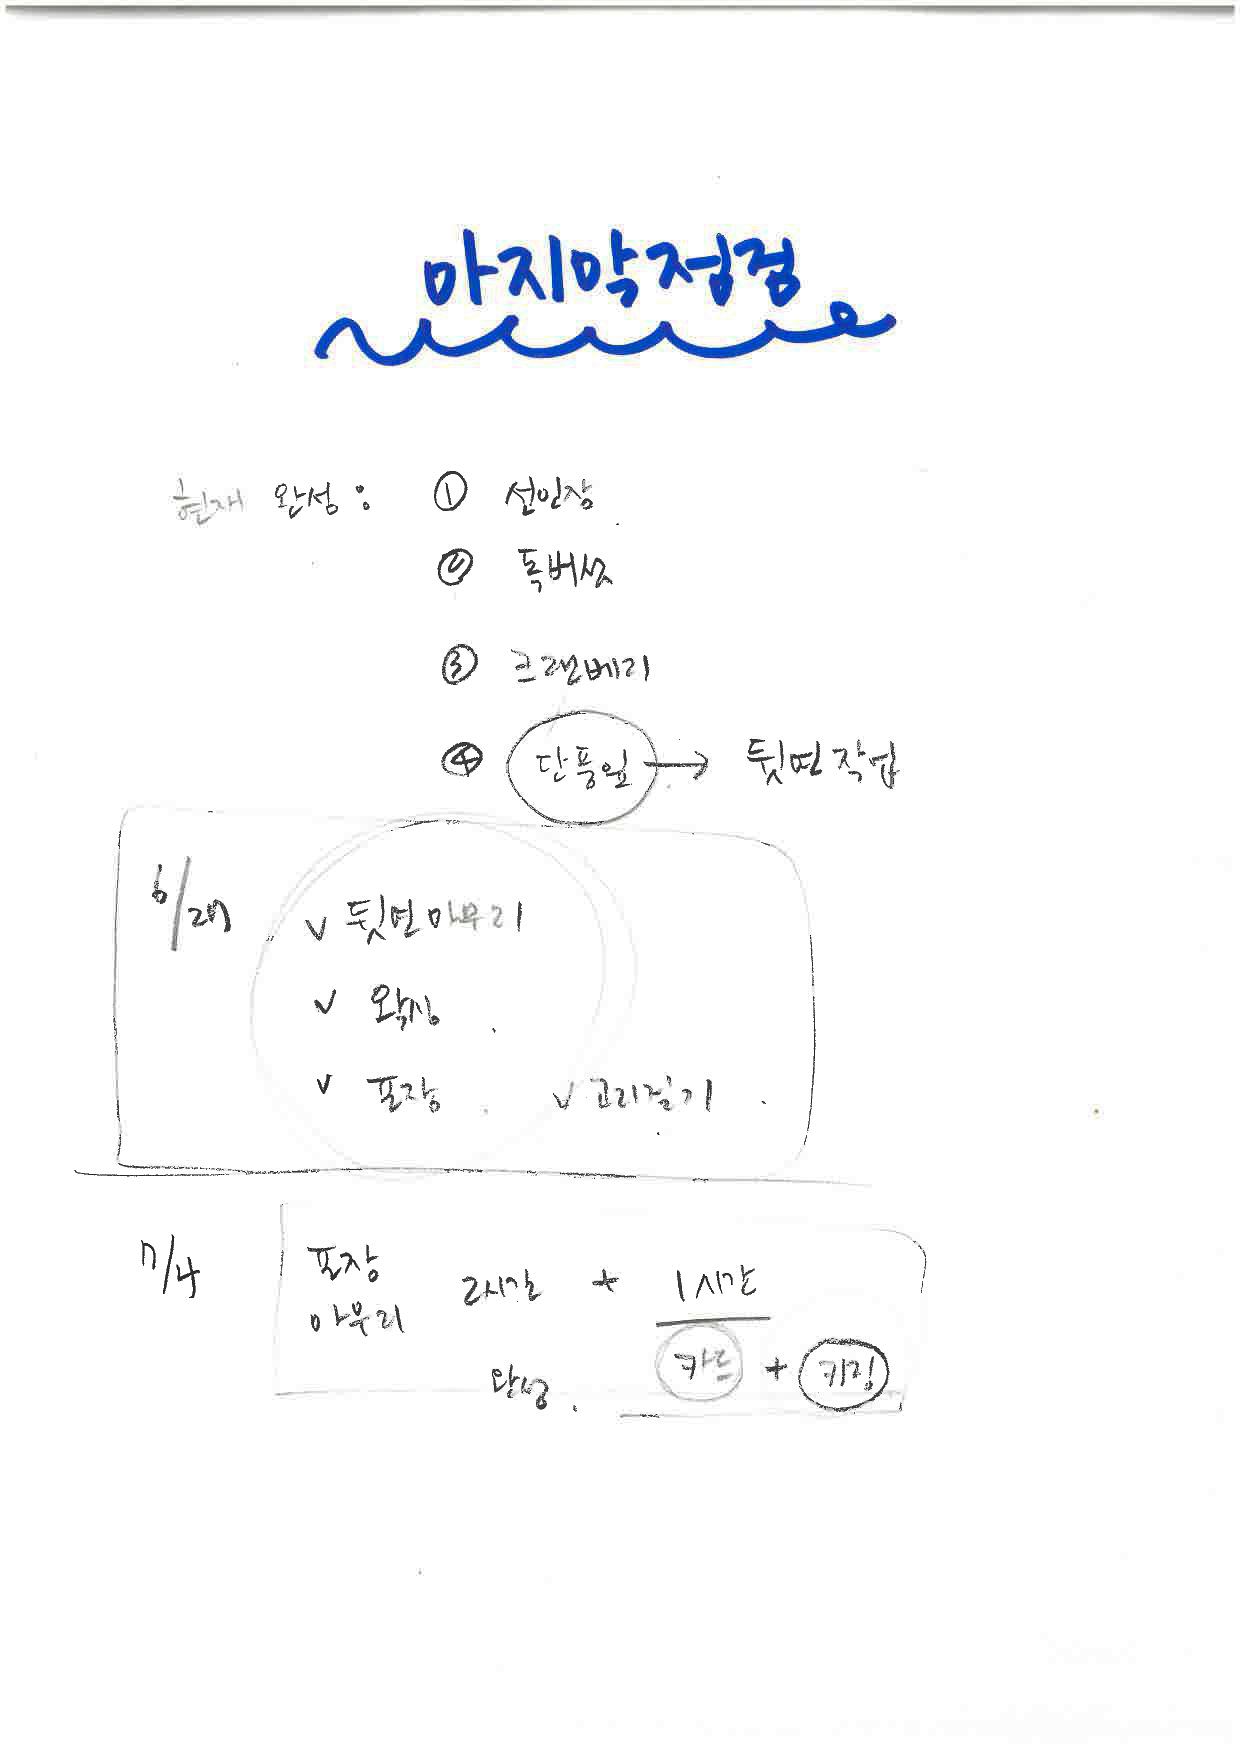 마지막점검
현재 완성 : ① 선인장
② 독버섯
③ 크랜베리
④ 단풍잎 → 뒷면작업
6/27 v 뒷면마무리
v 왁싱
v 포장 v 고리걸기
7/4 포장 2시간 + 1시간
마무리
카드 + 키링
완성.